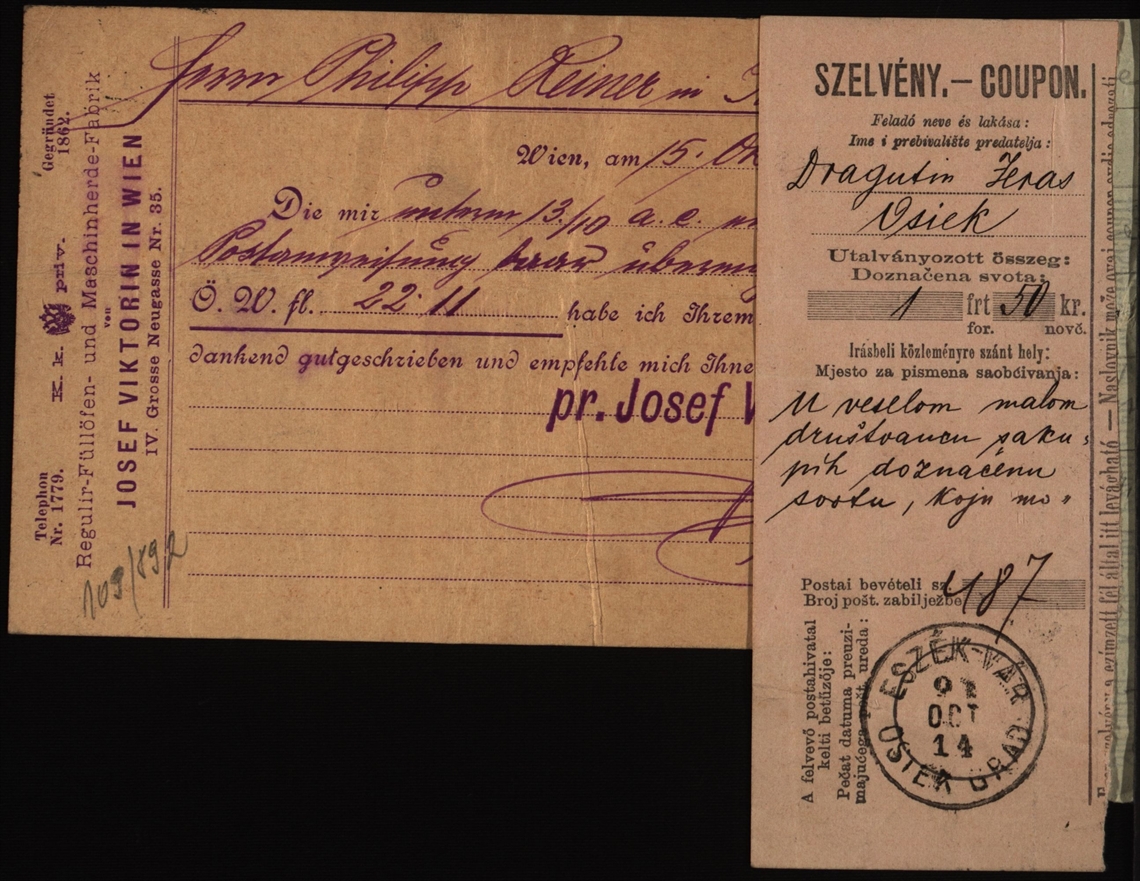 Gegründet
1862.
K. k. priv.
Telephon
Nr. 1779.
Regulir-Füllöfen- und Maschinherde-Fabrik
von
JOSEF VIKTORIN IN WIEN
IV. Grosse Neugasse Nr. 35.
109/892
Herrn Philipp Reiner in
Wien, am 15. Ok
Die mir unterm 13./10 a. c.
Postanweisung baar überm
Ö. W. fl. 22.11 habe ich Ihrem
dankend gutgeschrieben und empfehle mich Ihne
pr. Josef V
SZELVÉNY.— COUPON.
Feladó neve és lakása:
Ime i prebivalište predatelja:
Dragutin Jeras
Osiek
Utalványozott összeg:
Doznačena svota:
1 frt 50 kr.
for. novč.
Irásbeli közleményre szánt hely:
Mjesto za pismena saobćivanja:
U veselom malom
društvancu saku-
pih doznačenu
svotu, koju mo-
Postai bevételi sz.
Broj pošt. zabilježbe
487
A felvevő postahivatal
kelti betűzője:
Pečat datuma preuzi-
majućega pošt. ureda:
ESZÉK-VÁR
OCT
14
OSIEK GRAD
által itt levágható — Naslovnik može ovaj coupon ovdje odrezati